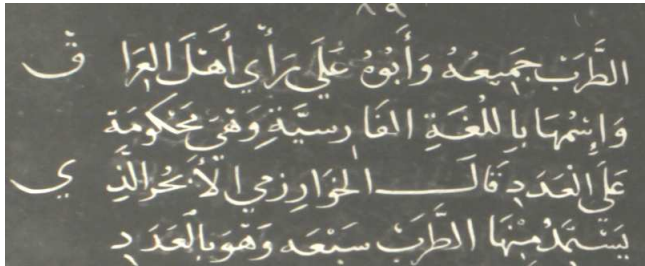 ٨٩
الطَّرَبْ جَمِيعُهُ وَأَبُوهُ عَلَى رَأْي أَهْلَ العِرَا ق
وَإِسْمُهَا بِاللُغَةِ الفَارِسيَّةِ وَهْيَ مَحْكُومَة
عَلَى الْعَدَدِ قَالَ الخوَارِزمي الْأَبْحُر الَّذِ ي
يَسْتَمِدُ مِنْهَا الطَّرَبْ سَبْعَه وَهْوَ بِالعَدَدِ